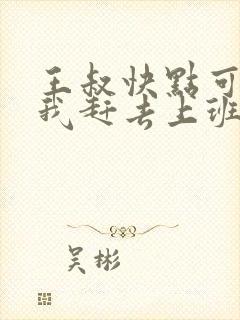 王叔快點可
我赶去上班
吴彬